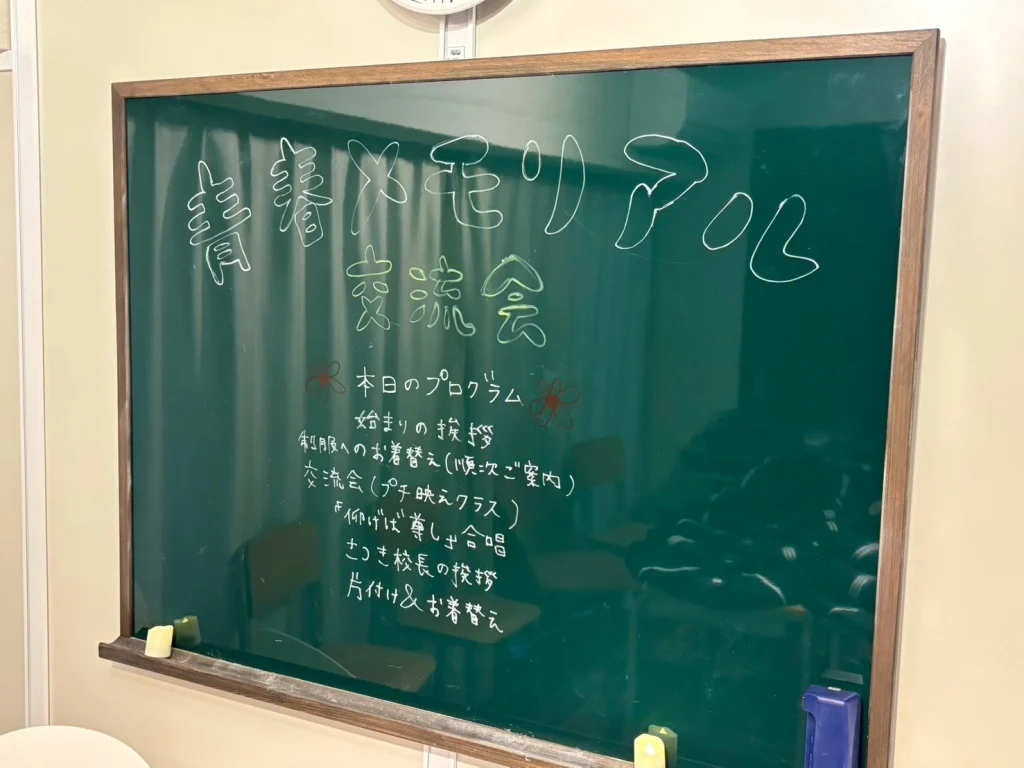 青春メモリアル
交流会
本日のプログラム
始まりの挨拶
制服へのお着替え(順次ご案内)
交流会(プチ映えクラス)
『仰げば尊し』合唱
さつき校長の挨拶
片付け&お着替え